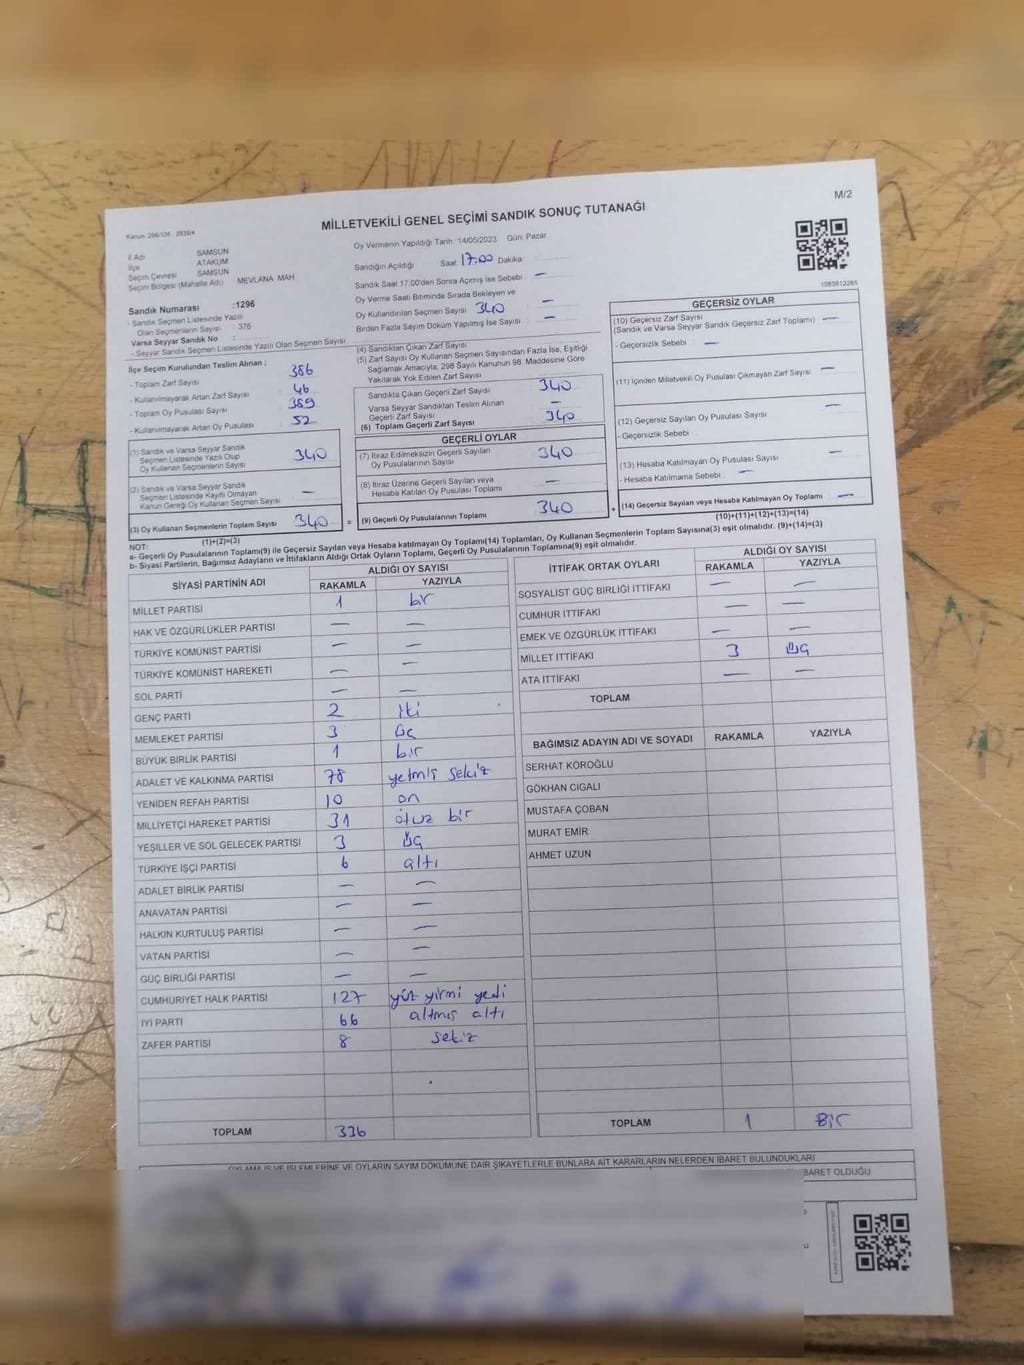 M/2
MİLLETVEKİLİ GENEL SEÇİMİ SANDIK SONUÇ TUTANAĞI
İl Adı SAMSUN
İlçe ATAKUM
Seçim Çevresi SAMSUN
Seçim Bölgesi (Mahalle Adı) MEVLANA MAH
Sandık Numarası :1296
- Sandık Seçmen Listesinde Yazılı
Olan Seçmenlerin Sayısı : 376
Varsa Seyyar Sandık No :
- Seyyar Sandık Seçmen Listesinde Yazılı Olan Seçmen Sayısı
İlçe Seçim Kurulundan Teslim Alınan ;
- Toplam Zarf Sayısı 386
- Kullanılmayarak Artan Zarf Sayısı 46
- Toplam Oy Pusulası Sayısı 389
- Kullanılmayarak Artan Oy Pusulası 52
(1) Sandık ve Varsa Seyyar Sandık
Seçmen Listesinde Yazılı Olup
Oy Kullanan Seçmenlerin Sayısı 340
(2) Sandık ve Varsa Seyyar Sandık
Seçmen Listesinde Kayıtlı Olmayan
Kanun Gereği Oy Kullanan Seçmen Sayısı —
(3) Oy Kullanan Seçmenlerin Toplam Sayısı 340 =
(1)+(2)=(3)
Oy Vermenin Yapıldığı Tarih :14/05/2023 Gün: Pazar
Sandığın Açıldığı Saat: 17:00 Dakika:
Sandık Saat 17.00'den Sonra Açılmış İse Sebebi : —
Oy Verme Saati Bitiminde Sırada Bekleyen ve —
Oy Kullandırılan Seçmen Sayısı 340
Birden Fazla Sayım Döküm Yapılmış İse Sayısı : —
(4) Sandıktan Çıkan Zarf Sayısı
(5) Zarf Sayısı Oy Kullanan Seçmen Sayısından Fazla İse, Eşitliği
Sağlamak Amacıyla, 298 Sayılı Kanunun 98. Maddesine Göre
Yakılarak Yok Edilen Zarf Sayısı
Sandıkta Çıkan Geçerli Zarf Sayısı 340
Varsa Seyyar Sandıktan Teslim Alınan
Geçerli Zarf Sayısı —
(6) Toplam Geçerli Zarf Sayısı 340
GEÇERLİ OYLAR
(7) İtiraz Edilmeksizin Geçerli Sayılan
Oy Pusulalarının Sayısı 340
(8) İtiraz Üzerine Geçerli Sayılan veya
Hesaba Katılan Oy Pusulası Toplamı —
(9) Geçerli Oy Pusulalarının Toplamı 340 +
1083812265
GEÇERSİZ OYLAR
(10) Geçersiz Zarf Sayısı —
(Sandık ve Varsa Seyyar Sandık Geçersiz Zarf Toplamı)
- Geçersizlik Sebebi : —
(11) İçinden Milletvekili Oy Pusulası Çıkmayan Zarf Sayısı —
(12) Geçersiz Sayılan Oy Pusulası Sayısı —
- Geçersizlik Sebebi :
(13) Hesaba Katılmayan Oy Pusulası Sayısı —
- Hesaba Katılmama Sebebi —
(14) Geçersiz Sayılan veya Hesaba Katılmayan Oy Toplamı —
(10)+(11)+(12)+(13)=(14)
NOT:
a- Geçerli Oy Pusulalarının Toplamı(9) ile Geçersiz Sayılan veya Hesaba katılmayan Oy Toplamı(14) Toplamları, Oy Kullanan Seçmenlerin Toplam Sayısına(3) eşit olmalıdır. (9)+(14)=(3)
b- Siyasi Partilerin, Bağımsız Adayların ve İttifakların Aldığı Ortak Oyların Toplamı, Geçerli Oy Pusulalarının Toplamına(9) eşit olmalıdır.
SİYASİ PARTİNİN ADI ALDIĞI OY SAYISI
RAKAMLA YAZIYLA
MİLLET PARTİSİ 1 bir
HAK VE ÖZGÜRLÜKLER PARTİSİ — —
TÜRKİYE KOMÜNİST PARTİSİ — —
TÜRKİYE KOMÜNİST HAREKETİ — —
SOL PARTİ — —
GENÇ PARTİ 2 iki
MEMLEKET PARTİSİ 3 üç
BÜYÜK BİRLİK PARTİSİ 1 bir
ADALET VE KALKINMA PARTİSİ 78 yetmiş sekiz
YENİDEN REFAH PARTİSİ 10 on
MİLLİYETÇİ HAREKET PARTİSİ 31 otuz bir
YEŞİLLER VE SOL GELECEK PARTİSİ 3 üç
TÜRKİYE İŞÇİ PARTİSİ 6 altı
ADALET BİRLİK PARTİSİ — —
ANAVATAN PARTİSİ — —
HALKIN KURTULUŞ PARTİSİ — —
VATAN PARTİSİ — —
GÜÇ BİRLİĞİ PARTİSİ — —
CUMHURİYET HALK PARTİSİ 127 yüz yirmi yedi
İYİ PARTİ 66 altmış altı
ZAFER PARTİSİ 8 sekiz
TOPLAM 336
İTTİFAK ORTAK OYLARI ALDIĞI OY SAYISI
RAKAMLA YAZIYLA
SOSYALİST GÜÇ BİRLİĞİ İTTİFAKI — —
CUMHUR İTTİFAKI — —
EMEK VE ÖZGÜRLÜK İTTİFAKI — —
MİLLET İTTİFAKI 3 üç
ATA İTTİFAKI — —
TOPLAM
BAĞIMSIZ ADAYIN ADI VE SOYADI RAKAMLA YAZIYLA
SERHAT KÖROĞLU
GÖKHAN CIGALI
MUSTAFA ÇOBAN
MURAT EMİR
AHMET UZUN
TOPLAM 1 Bir
OYLAMA İŞ VE İŞLEMLERİNE VE OYLARIN SAYIM DÖKÜMÜNE DAİR ŞİKAYETLERLE BUNLARA AİT KARARLARIN NELERDEN İBARET BULUNDUKLARI
İBARET OLDUĞU